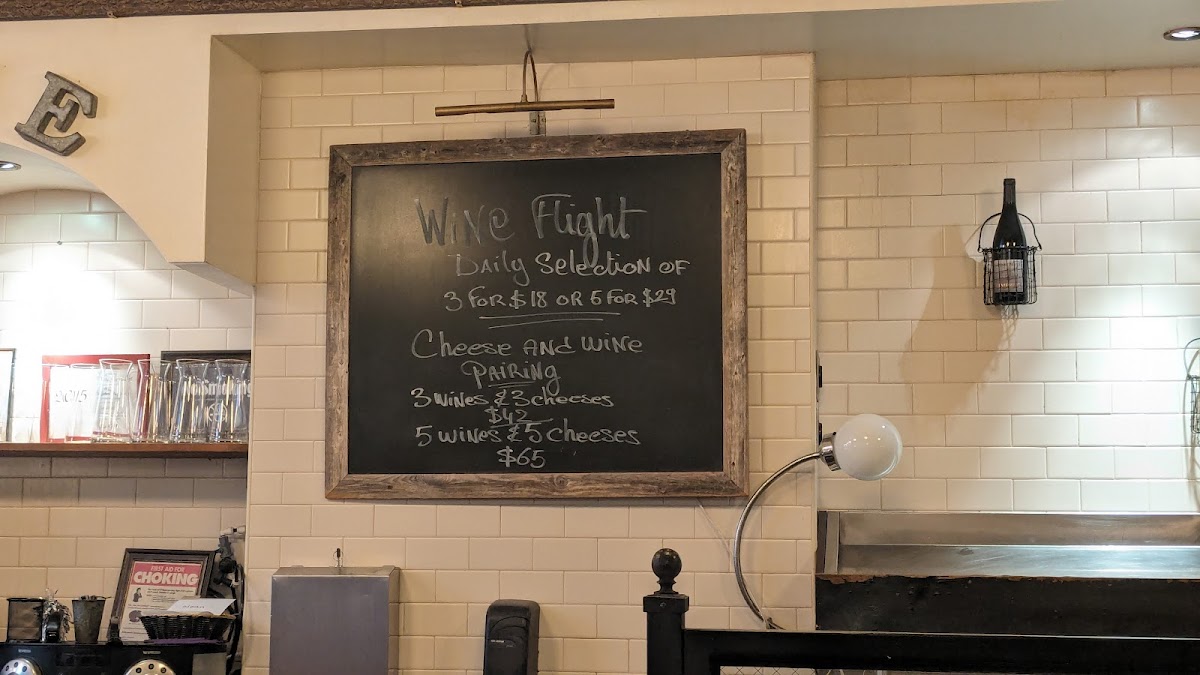 E
Wine Flight
Daily Selection of
3 for $18 or 5 for $29
Cheese and wine
Pairing
3 wines & 3 cheeses
$42
5 wines & 5 cheeses
$65
FIRST AID FOR
CHOKING